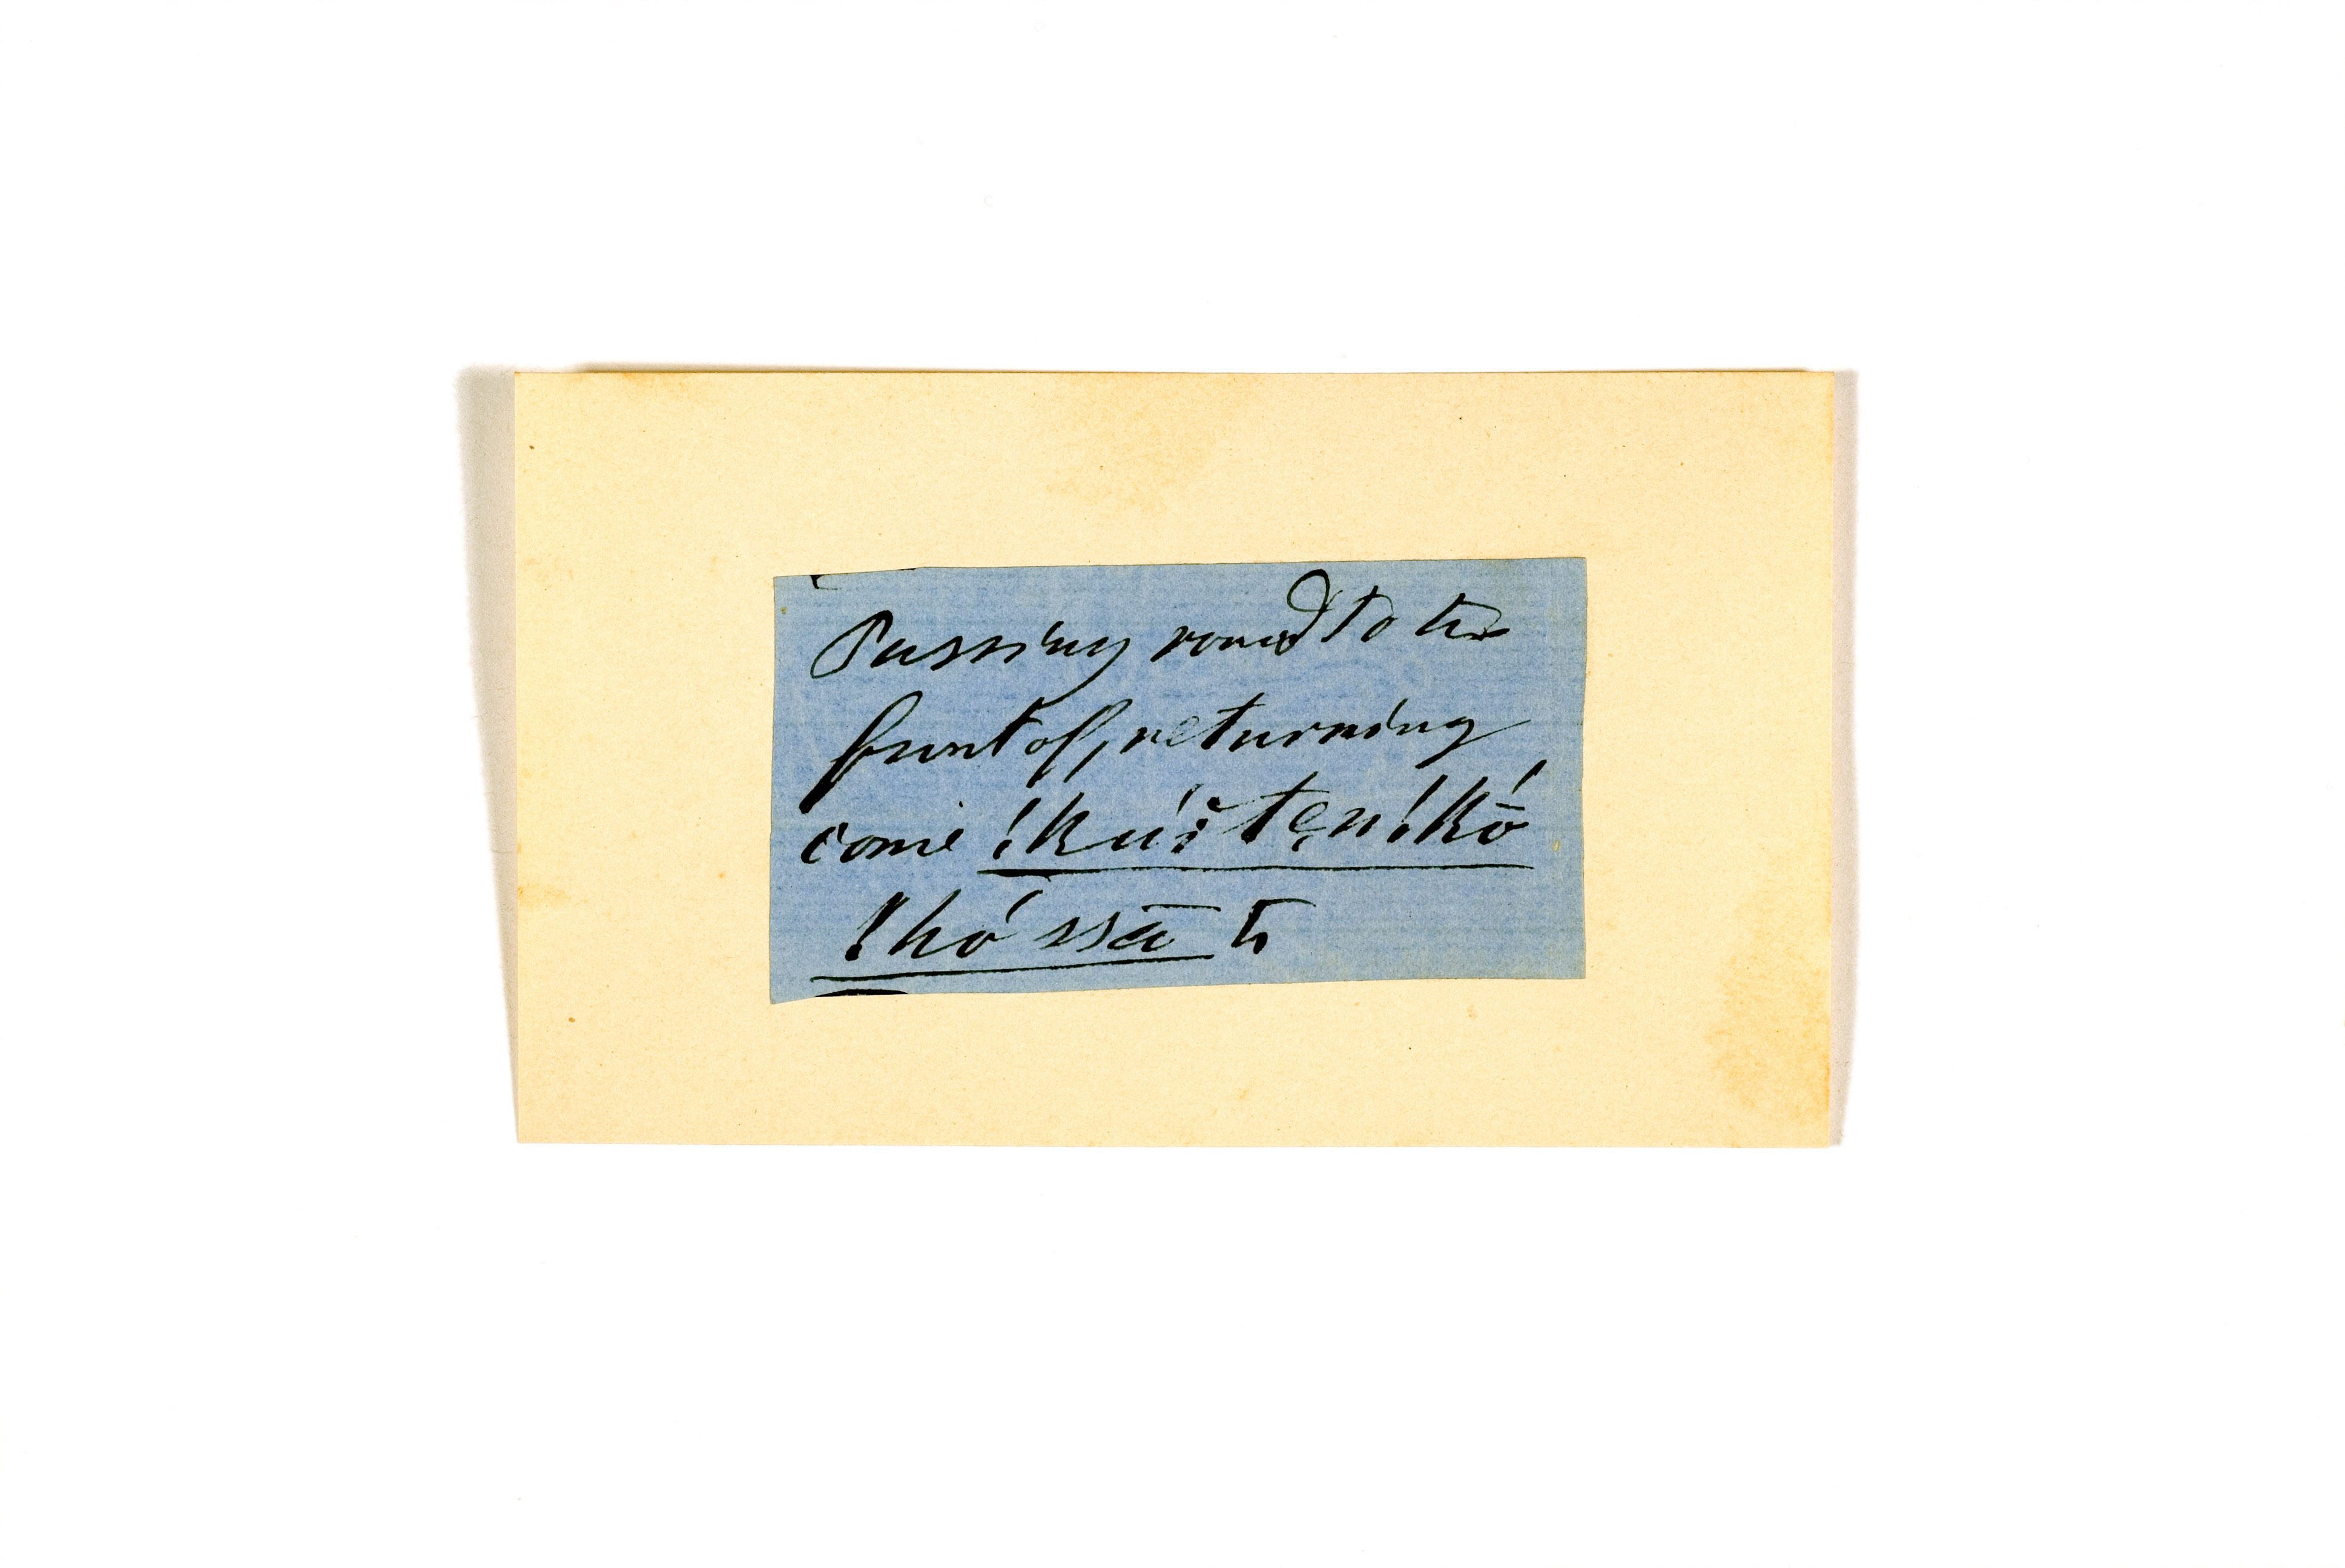 Passing round to the
front of, returning
come !kúïten!kṓ
!hó ssā ti